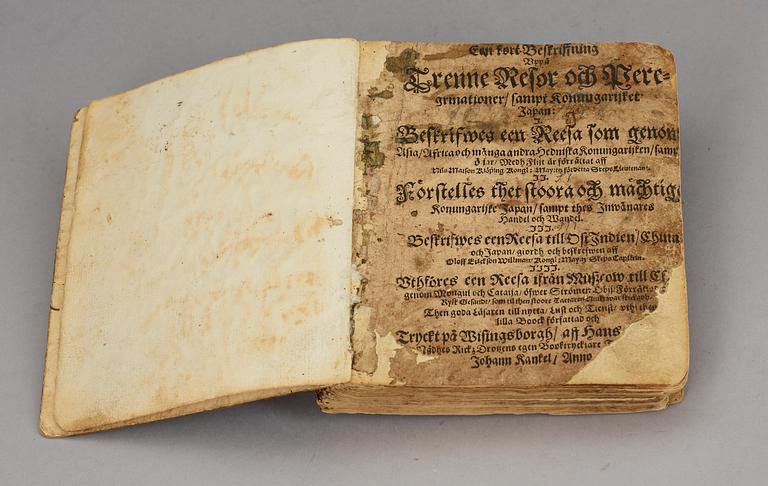 Een kort Beskriffning
Uppå
Trenne Resor och Pere-
grinationer/ sampt Konungarijket
Japan:
I.
Beskrifwes een Reesa som genom
Asia/ Africa och många andra Hedniska Konungarijken/ samp
Öiar/ Medh Flijt är förrättat aff
Nils Matson Kiöping Kongl: May:tz fördetta Skeps Lieutenant
II.
Förstelles thet stoora och mächtige
Konungarijke Japan/ sampt thes Inwånares
Handel och Wandel.
III.
Beskrifwes een Reesa till Ost Indien/ China
och Japan/ giordh och beskrefwen aff
Oloff Erickson Willman Kongl: May:tz Skeps Capitein.
IIII.
Uthföres een Reesa ifrån Mußcow till Ch
genom Mongul och Cataija/ öfwer Strömen Obij: Förrättat
Rysk Gesandt/ som til then stoore Tartaren
Then goda Läsaren till nytta/ Lust och Tienst/ uthi
lilla Boock författad och
Tryckt på Wijsingsborgh/ aff Hans
Nådhes Rickz Drotzens egen Booktryckiare
Johann Kankel/ Anno